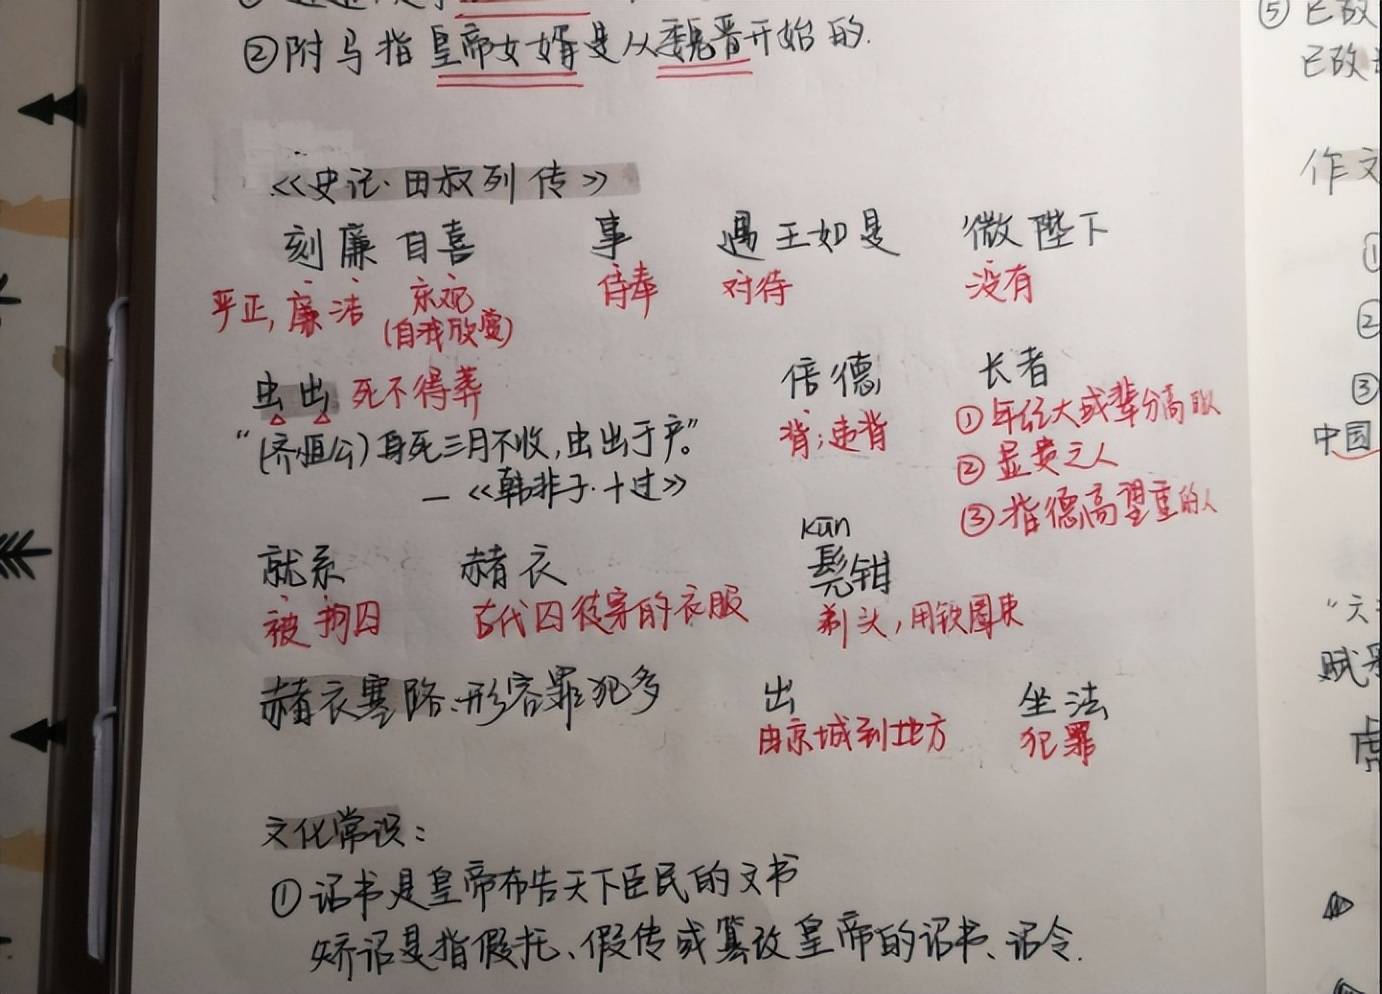 ②附马指皇帝女婿是从魏晋开始的.
《史记·田叔列传》
刻廉自喜 事 遇王如是 微陛下
严正,廉洁 乐观 侍奉 对待 没有
(自我欣赏)
虫出 死不得葬 倍德 长者
背;违背 ①年纪大或辈分高的人
"(齐恒公)身死三月不收,虫出于户。"
②显贵之人
—《韩非子·十过》
③指德高望重的人
kūn
就系 赭衣 髡钳
被拘囚 古代囚徒穿的衣服 剃头,用铁圈束
赭衣塞路:形容罪犯多 出 坐法
由京城到地方 犯罪
文化常识:
①诏书是皇帝布告天下臣民的文书
矫诏是指假托、假传或篡改皇帝的诏书、诏令.
⑤已故
已故
作文
①
②
③
中国
"六
赋
虎